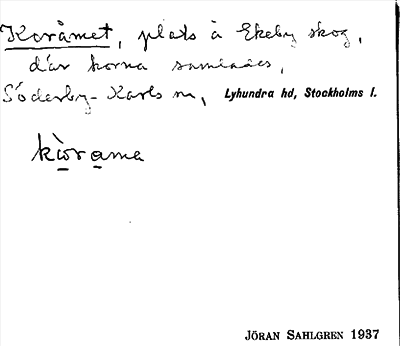 Koråmet, plats å Ekeby skog,
där korna samlades,
Söderby-Karls sn, Lyhundra hd, Stockholms l.
kòrama
JÖRAN SAHLGREN 1937